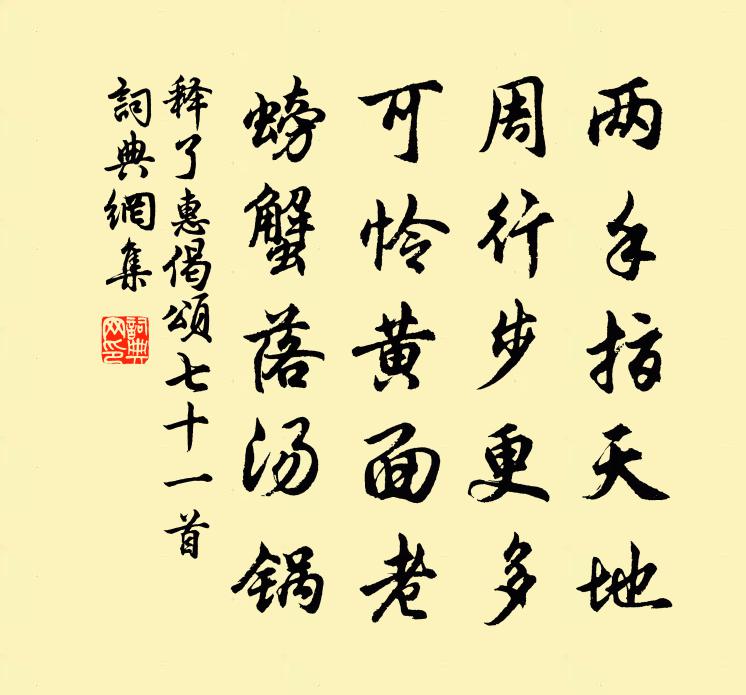 两手指天地
周行步更多
可怜黄面老
螃蟹落汤锅
释了惠偈颂七十一首
詞典網集
詞典网印